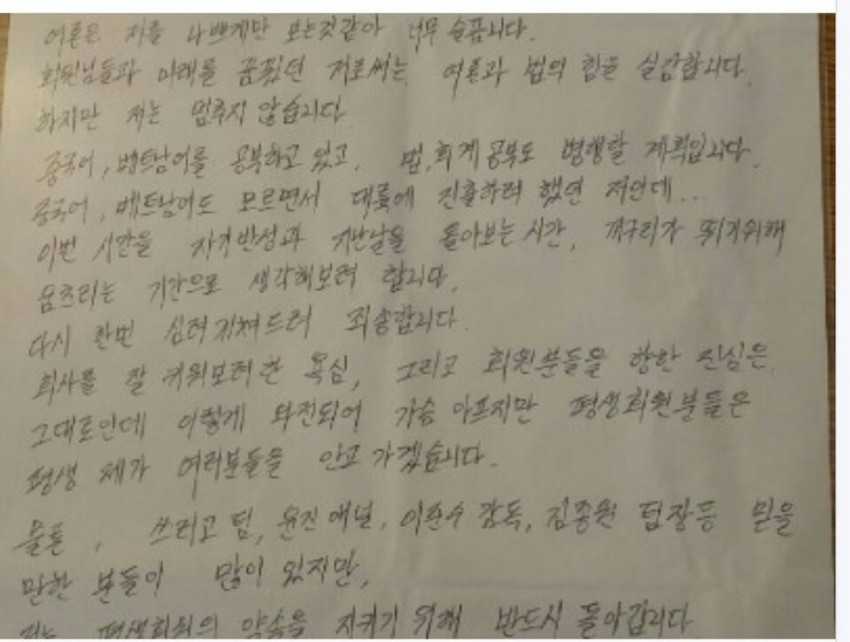 여론은 저를 나쁘게만 보는것같아 너무 슬픕니다.
회원님들과 미래를 꿈꿨던 저로써는 여론과 법의 힘을 실감합니다.
하지만 저는 멈추지 않습니다
중국어, 베트남어를 공부하고 있고, 법,회계 공부도 병행할 계획입니다.
중국어, 베트남어도 모르면서 대륙에 진출하려 했던 저인데...
이번 시간을 자기반성과 지난날을 돌아보는 시간, 개구리가 뛰기위해
움츠리는 기간으로 생각해보려 합니다.
다시 한번 심려끼쳐드려 죄송합니다.
회사를 잘 키워보려한 욕심, 그리고 회원분들을 향한 진심은
그대로인데 이렇게 와전되어 가슴 아프지만 평생회원분들은
평생 제가 여러분들을 안고 가겠습니다.
물론, 쓰리고 팀, 윤진 애널, 이환수 감독, 김종원 팀장등 믿을
만한 분들이 많이 있지만,
저는 평생회원의 약속을 지키기 위해 반드시 돌아갑니다